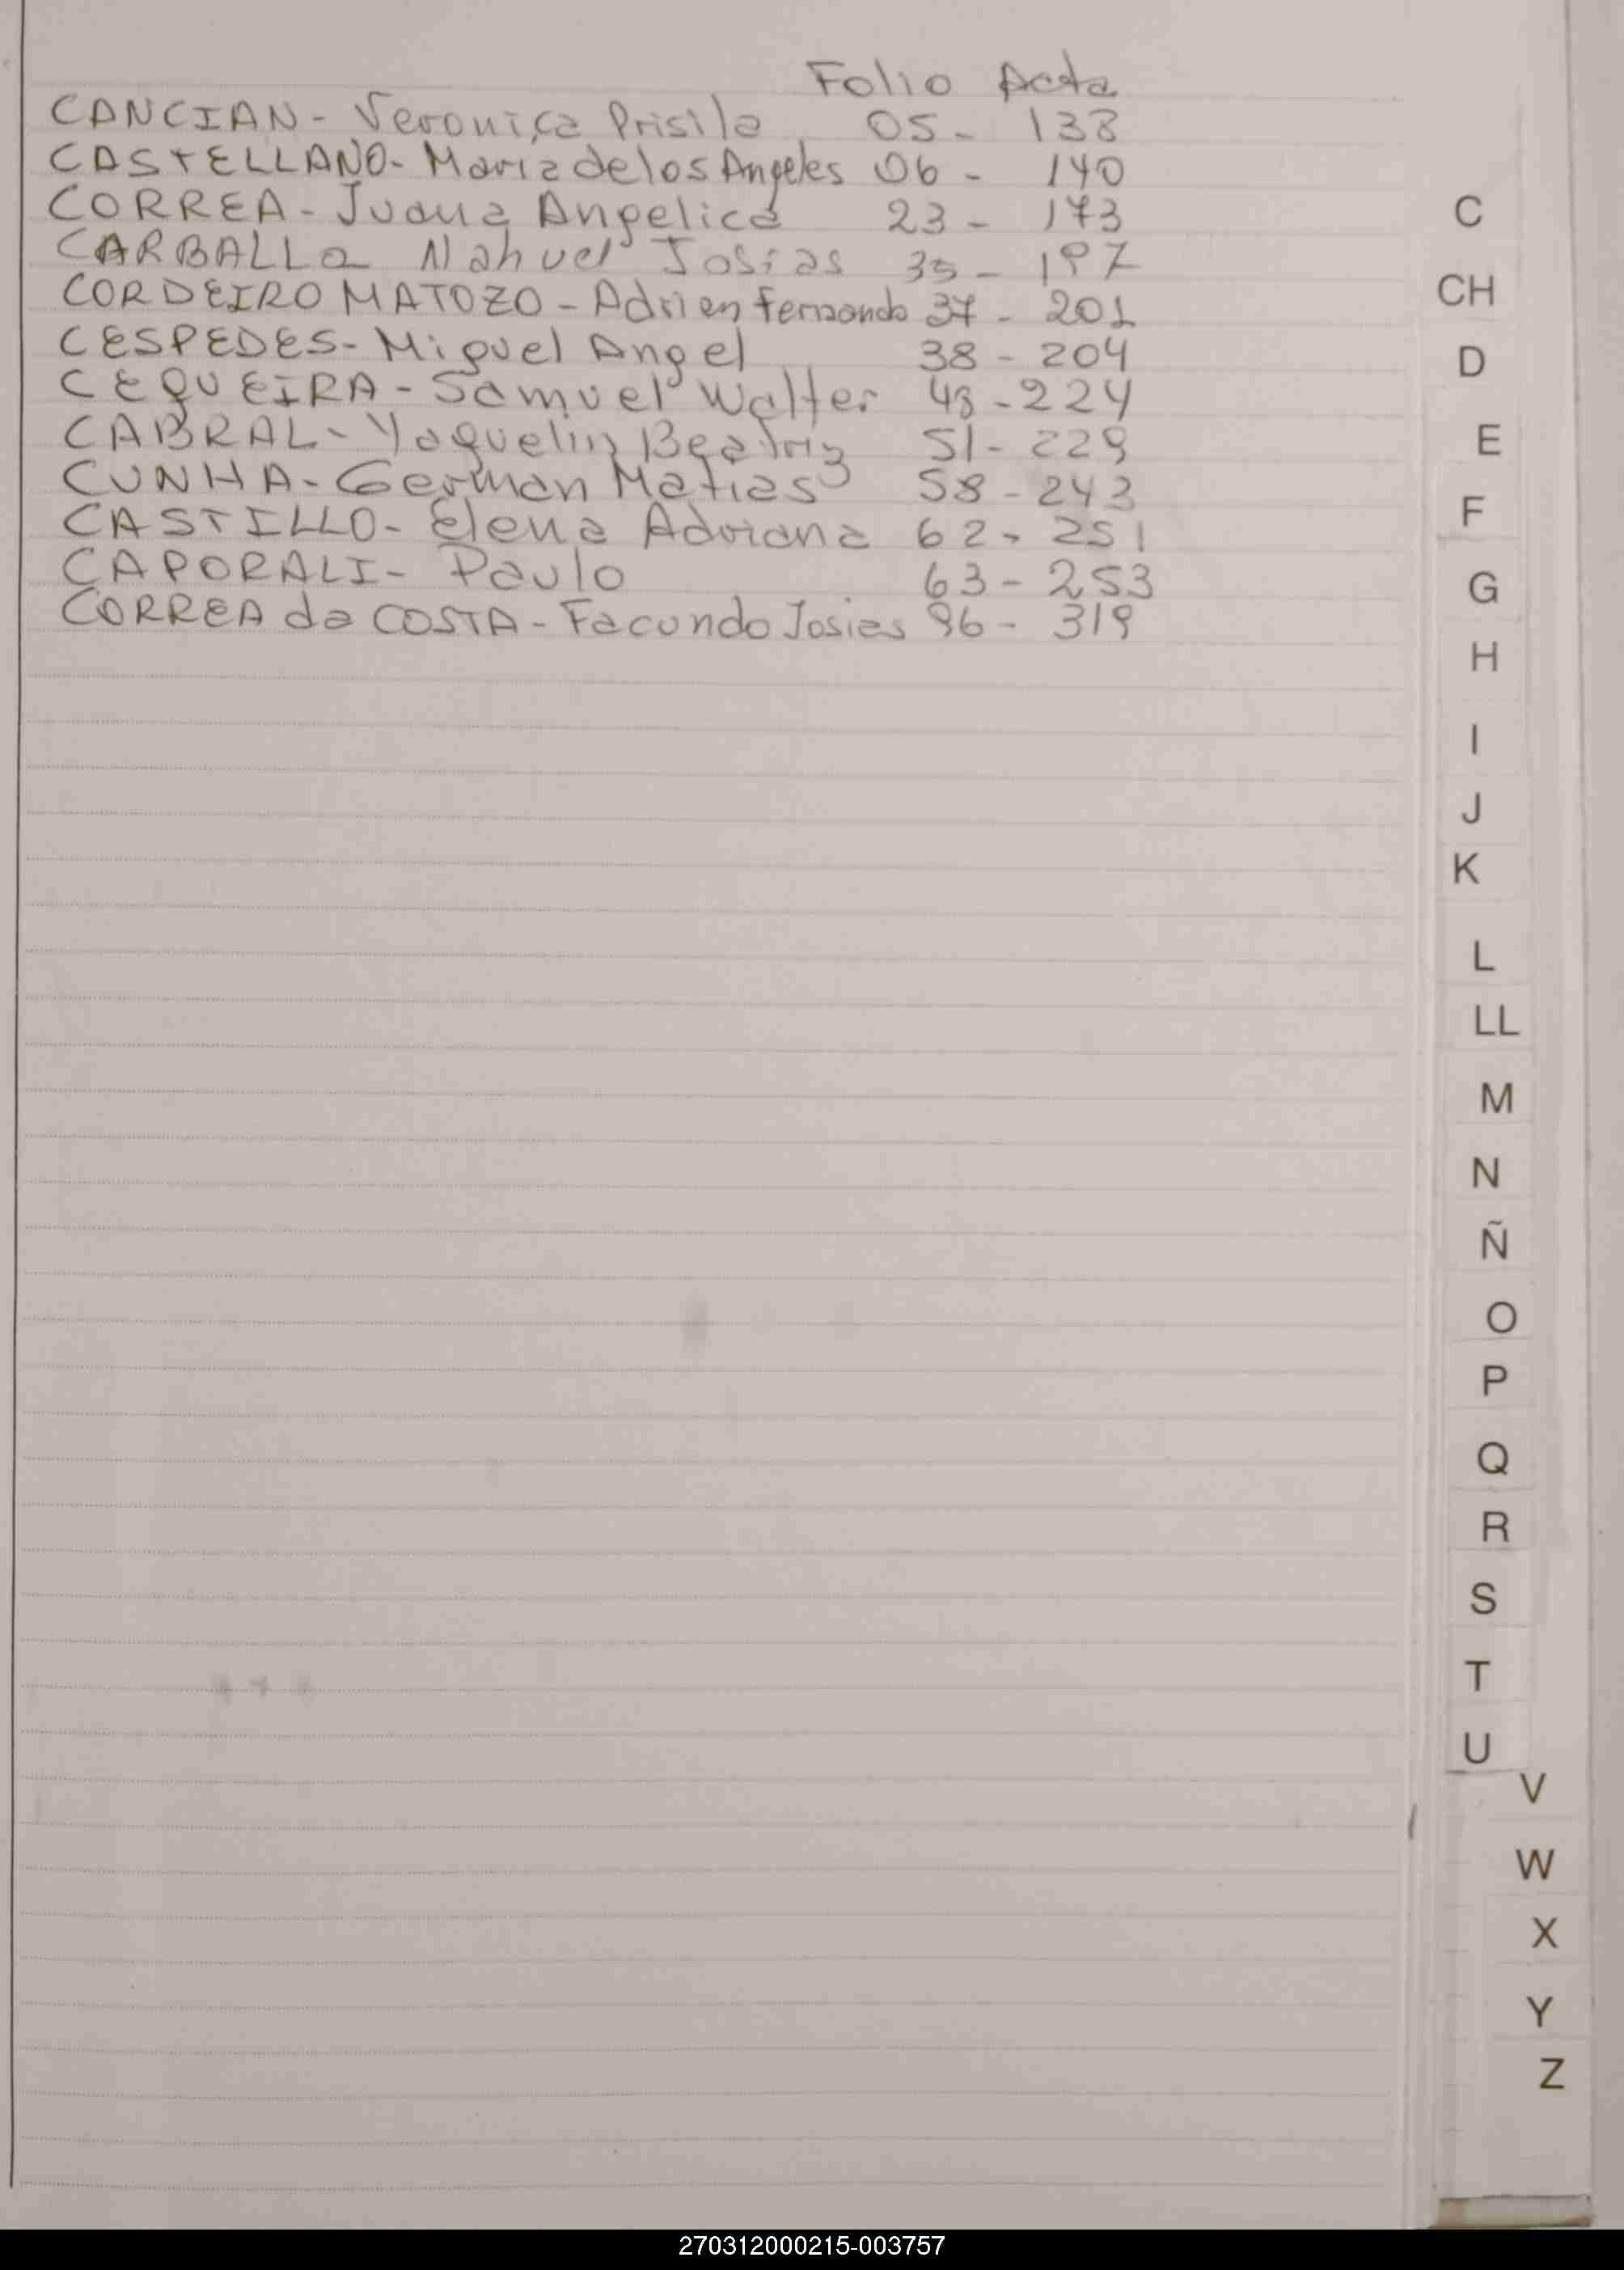 Folio Acta
CANCIAN - Veronica Prisila 05 - 138
CASTELLANO - Maria de los Angeles 06 - 140
CORREA - Juana Angelica 23 - 173
CARBALLO Nahuel Josias 35 - 197
CORDEIRO MATOZO - Adrien Fernando 37 - 201
CESPEDES - Miguel Angel 38 - 204
CEQUEIRA - Samuel Walter 48 - 224
CABRAL - Yaquelin Beatriz 51 - 229
CUNHA - German Matias 58 - 243
CASTILLO - Elena Adriana 62 - 251
CAPORALI - Paulo 63 - 253
CORREA da COSTA - Facundo Josias 96 - 319
C
CH
D
E
F
G
H
I
J
K
L
LL
M
N
Ñ
O
P
Q
R
S
T
U
V
W
X
Y
Z
270312000215-003757